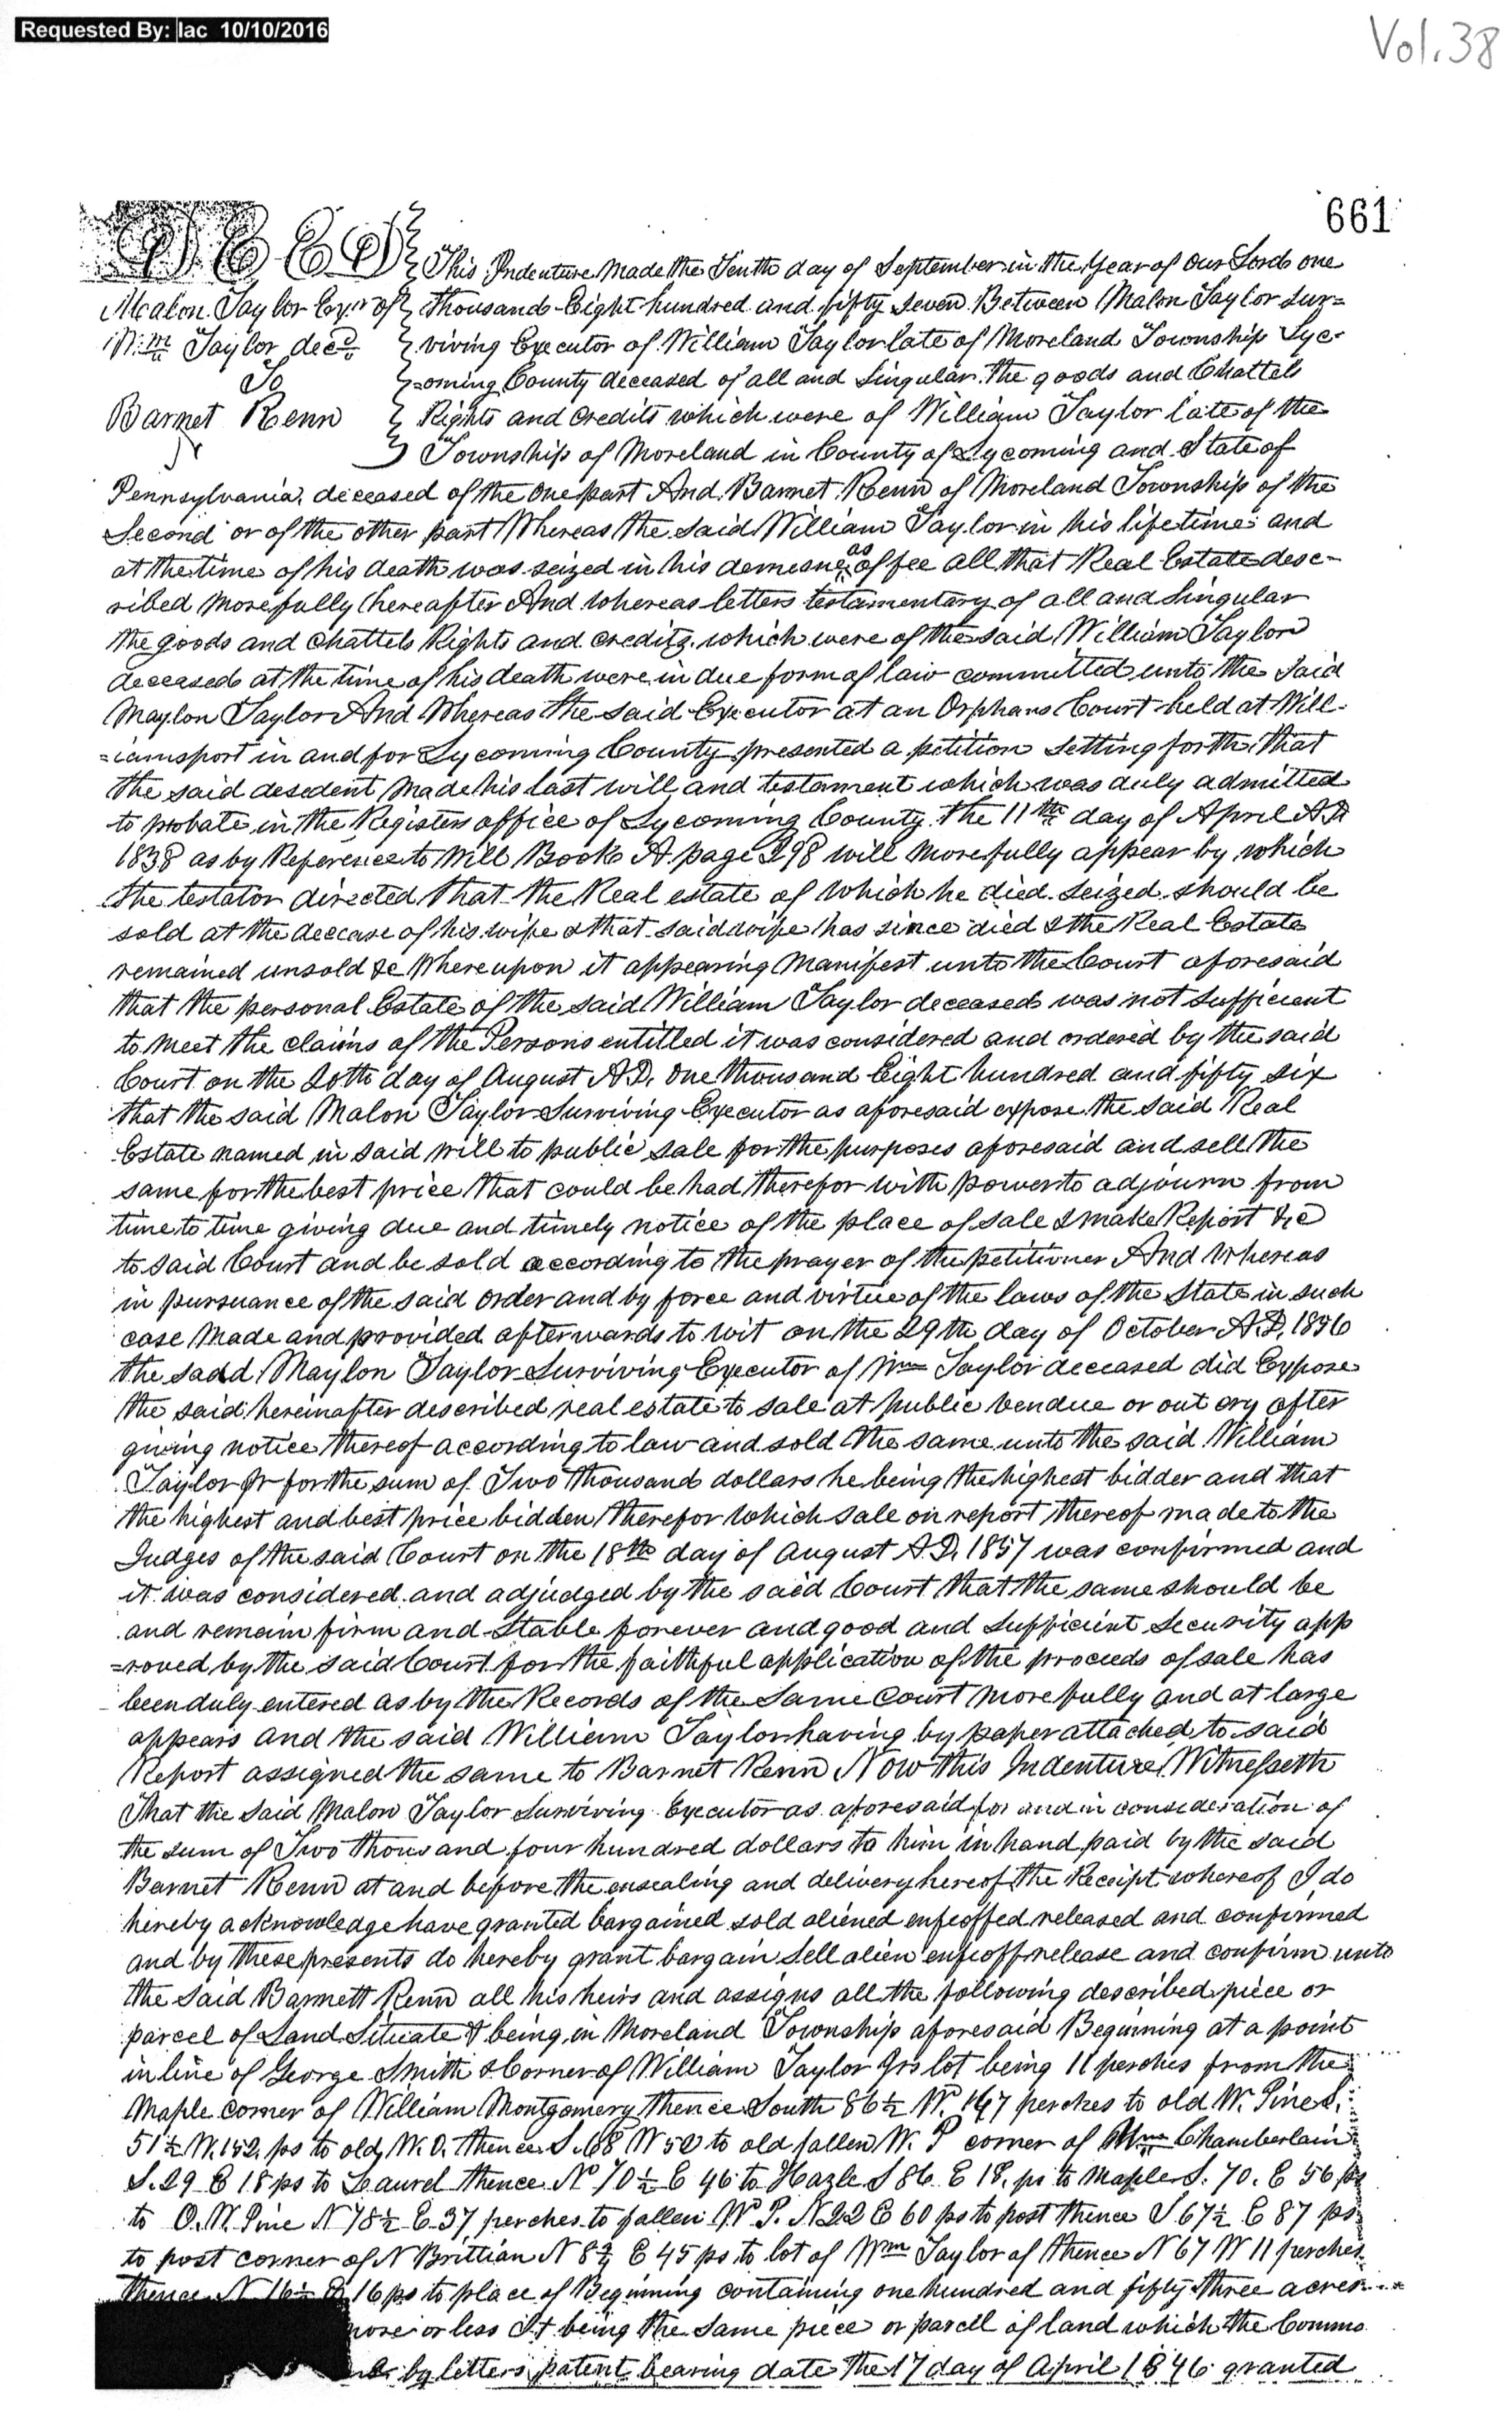 Requested By: lac 10/10/2016
Vol. 38
661
DEED
Mcalon Taylor Exr of
Wm Taylor decd
To
Barnet Renn
This Indenture Made the Tenth day of September in the Year of Our Lord one
thousand Eight hundred and fifty Seven Between Malon Taylor Sur=
viving Executor of William Taylor late of Moreland Township Lyc-
=oming County deceased of all and Singular the goods and Chattels
Rights and Credits which were of William Taylor late of the
Township of Moreland in County of Lycoming and State of
Pennsylvania, deceased of the One part And Barnet Renn of Moreland Township of the
Second or of the other part Whereas the said William Taylor in his lifetime and
at the time of his death was seized in his demesne as of fee all that Real Estate desc-
ribed More fully hereafter And Whereas letters testamentary of all and Singular
the goods and Chattels Rights and credits which were of the said William Taylor
deceased at the time of his death were in due form of law committed unto the Said
Maylon Taylor And Whereas the said Executor at an Orphans Court held at Will-
=iamsport in and for Lycoming County presented a petition Setting forth that
the said desedent Made his last will and testament which was duly admitted
to probate in the Registers office of Lycoming County the 11th day of April A.D
1838 as by Reference to Will Book A page 398 will More fully appear by which
the testator directed that the Real estate of Which he died Seized should be
sold at the decease of his wife & that said wife has since died & the Real Estate
remained unsold &c Whereupon it appearing Manifest unto the Court aforesaid
that the personal Estate of the said William Taylor deceased was not Sufficient
to Meet the claims of the Persons entitled it was considered and ordered by the said
Court on the 20th day of August A.D. One thousand Eight hundred and fifty six
that the said Malon Taylor Surviving Executor as aforesaid expose the said Real
Estate named in said will to public sale for the purposes aforesaid and sell the
same for the best price that could be had therefor with power to adjourn from
time to time giving due and timely notice of the place of sale & make Report &c
to said Court and be sold according to the prayer of the petitioner And Whereas
in pursuance of the said order and by force and virtue of the laws of the State in such
case Made and provided afterwards to wit on the 29th day of October A.D. 1856
the said Maylon Taylor Surviving Executor of Wm Taylor deceased did Expose
the said hereinafter described real estate to sale at public vendue or out cry after
giving notice thereof according to law and sold the same unto the said William
Taylor Jr for the sum of Two thousand dollars he being the highest bidder and that
the highest and best price bidden therefor which sale on report thereof made to the
Judges of the said Court on the 18th day of August A.D. 1857 was confirmed and
it was considered and adjudged by the said Court that the same should be
and remain firm and Stable forever and good and Sufficient Security app
=roved by the said Court for the faithful application of the proceeds of sale has
been duly entered as by the Records of the Same Court More fully and at large
appears and the said William Taylor having by paper attached to said
Report assigned the same to Barnet Renn Now this Indenture Witnesseth
That the Said Malon Taylor Surviving Executor as aforesaid for and in consideration of
the sum of Two thousand four hundred dollars to him in hand paid by the said
Barnet Renn at and before the ensealing and delivery hereof the Receipt whereof I do
hereby acknowledge have granted bargained sold aliened enfeoffed released and confirmed
and by these presents do hereby grant bargain Sell alien enfeoff release and confirm unto
the Said Barnett Renn all his heirs and assigns all the following described piece or
parcel of Land Situate & being in Moreland Township aforesaid Beginning at a point
in line of George Smith & Corner of William Taylor Jrs lot being 11 perches from the
Maple corner of William Montgomery thence South 86½ W. 167 perches to old W. Pine S.
51½ W. 152 ps to old W. O. thence S. 68 W 50 to old fallen W. P corner of Wm Chamberlain
S. 29 E 18 ps to Laurel thence No 70½ E 46 to Hazle S 86 E 18 ps to Maple S. 70. E 56 ps
to O. W. Pine N 78½ E 37 perches to fallen W. P. N 22 E 60 ps to post thence S 67½ E 87 ps
to post corner of N Brittian N 8¾ E 45 ps to lot of Wm Taylor of thence N 67 W 11 perches
thence N 16½ E 16 ps to place of Beginning containing one hundred and fifty three acres
more or less It being the same piece or parcell of land which the Comms
by letters patent bearing date the 17 day of April 1846 granted